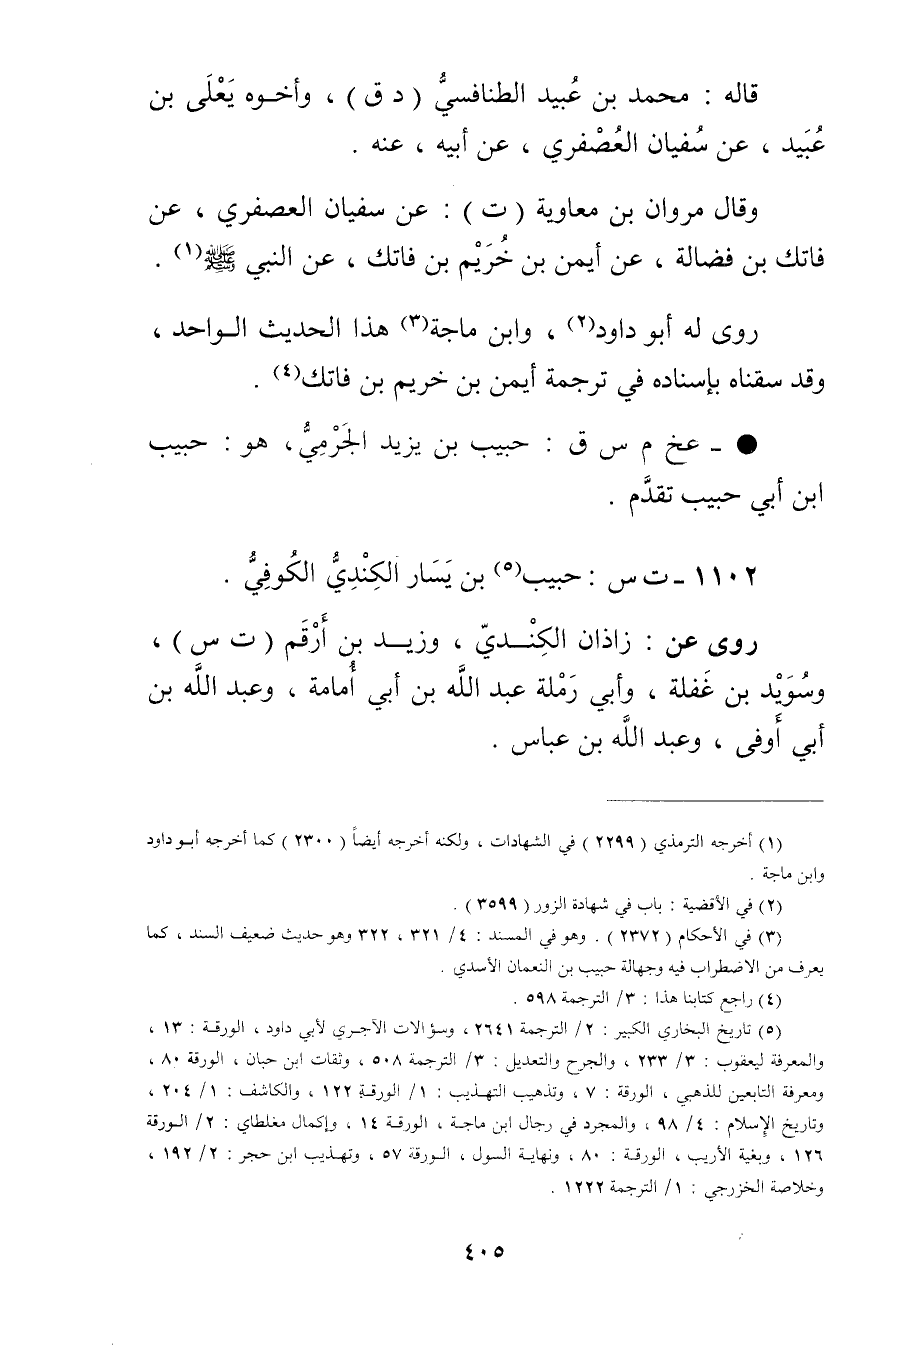 قاله : محمد بن عُبيد الطنافسيُّ ( د ق ) ، وأخـوه يَعْلَى بن
عُبَيد ، عن سُفيان العُصْفري ، عن أبيه ، عنه .
وقال مروان بن معاوية ( ت ) : عن سفيان العصفري ، عن
فاتك بن فضالة ، عن أيمن بن خُرَيْم بن فاتك ، عن النبي ﷺ(١) .
روى له أبو داود(٢) ، وابن ماجة(٣) هذا الحديث الـواحد ،
وقد سقناه بإسناده في ترجمة أيمن بن خريم بن فاتك(٤) .
● ـ عخ م س ق : حبيب بن يزيد الجَرْمِيُّ، هو : حبيب
ابن أبي حبيب تقدَّم .
١١٠٢ ـ ت س : حبيب(٥) بن يَسَار الكِنْدِيُّ الكُوفِيُّ .
روى عن : زاذان الكِنْـــديّ ، وزيــد بن أَرْقَم ( ت س ) ،
وسُوَيْد بن غَفلة ، وأبي رَمْلة عبد اللَّه بن أبي أُمامة ، وعبد اللَّه بن
أبي أَوفى ، وعبد اللَّه بن عباس .
(١) أخرجه الترمذي ( ٢٢٩٩ ) في الشهادات ، ولكنه أخرجه أيضاً ( ٢٣٠٠ ) كما أخرجه أبـو داود
وابن ماجة .
(٢) في الأقضية : باب في شهادة الزور ( ٣٥٩٩ ) .
(٣) في الأحكام ( ٢٣٧٢ ) . وهو في المسند : ٤/ ٣٢١ ، ٣٢٢ وهو حديث ضعيف السند ، كما
يعرف من الاضطراب فيه وجهالة حبيب بن النعمان الأسدي .
(٤) راجع كتابنا هذا : ٣/ الترجمة ٥٩٨ .
(٥) تاريخ البخاري الكبير : ٢/ الترجمة ٢٦٤١ ، وسؤالات الآجـري لأبي داود ، الورقـة : ١٣ ،
والمعرفة ليعقوب : ٣/ ٢٣٣ ، والجرح والتعديل : ٣/ الترجمة ٥٠٨ ، وثقات ابن حبان ، الورقة ٨٠ ،
ومعرفة التابعين للذهبي ، الورقة : ٧ ، وتذهيب التهـذيب : ١/ الورقـة ١٢٢ ، والكاشف : ١/ ٢٠٤ ،
وتاريخ الإسلام : ٤/ ٩٨ ، والمجرد في رجال ابن ماجـة ، الورقـة ١٤ ، وإكمال مغلطاي : ٢/ الـورقة
١٢٦ ، وبغية الأريب ، الورقـة : ٨٠ ، ونهايـة السول ، الـورقة ٥٧ ، وتهـذيب ابن حجر : ٢/ ١٩٢ ،
وخلاصة الخزرجي : ١/ الترجمة ١٢٢٢ .
٤٠٥